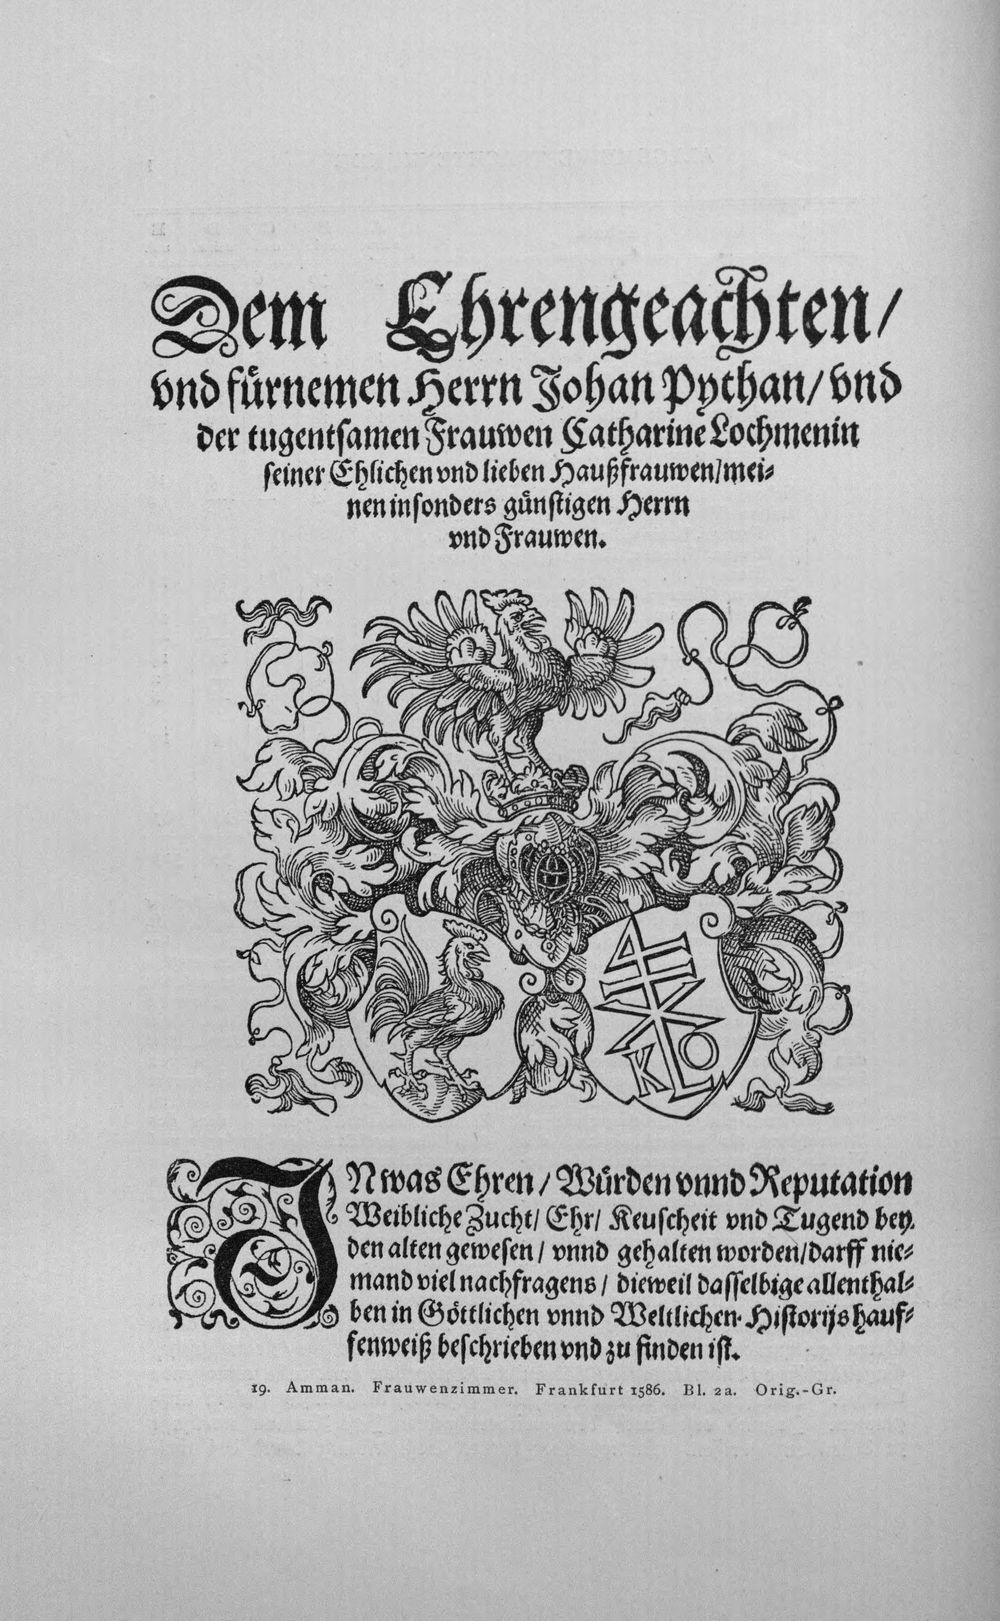 Dem Ehrengeachten/
vnd fürnemen Herrn Johan Pythan/ vnd
der tugentsamen Frauwen Catharine Lochmenin
seiner Ehlichen vnd lieben Haußfrauwen/ mei⸗
nen insonders günstigen Herrn
vnd Frauwen.
K O
IN was Ehren/ Würden vnnd Reputation
Weibliche Zucht/ Ehr/ Keuscheit vnd Tugend bey
den alten gewesen/ vnnd gehalten worden/ darff nie⸗
mand viel nachfragens/ dieweil dasselbige allenthal⸗
ben in Göttlichen vnnd Weltlichen Historijs hauf⸗
fenweiß beschrieben vnd zu finden ist.
19. Amman. Frauwenzimmer. Frankfurt 1586. Bl. 2a. Orig.-Gr.